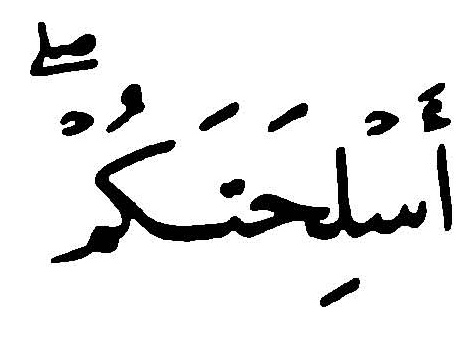 أَسْلِحَتَكُمْ ۖ